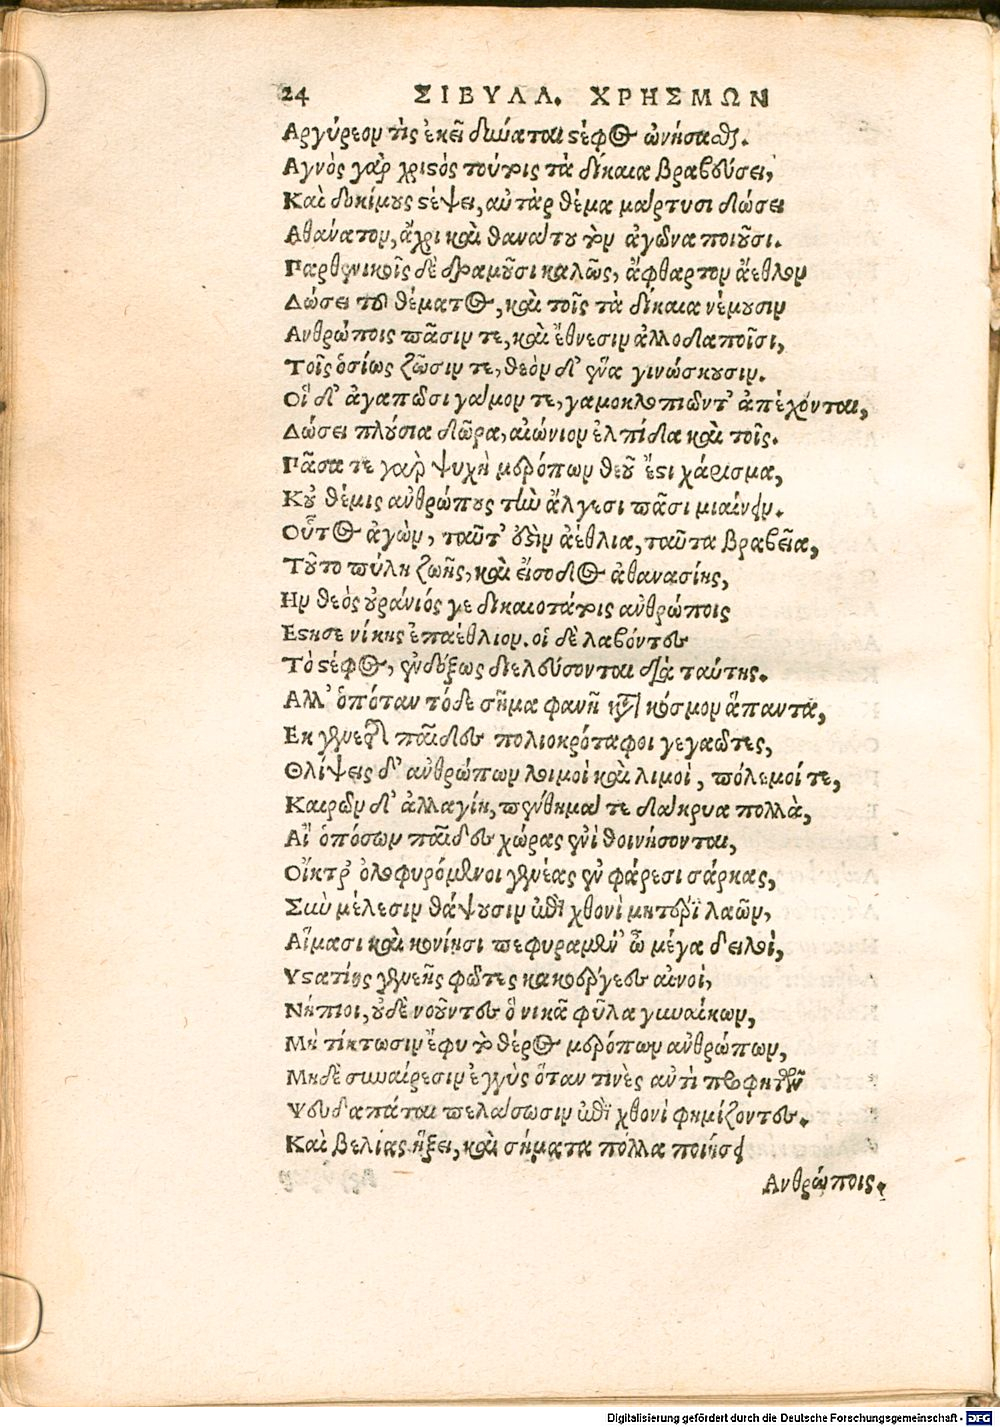 24 ΣΙΒΥΛΛ. ΧΡΗΣΜΩΝ
Αργύρεον τὶς ἐκεῖ δυνάται στέφος ὠνήσασθαι.
Αγνὸς γὰρ χριστὸς τούτοις τὰ δίκαια βραβεύσει,
Καὶ δοκίμους στέψει, αὐτὰρ θέμα μάρτυσι δώσει
Αθάνατον, ἄχρι καὶ θανάτου τὸν ἀγῶνα ποιοῦσι.
Παρθενικοῖς δὲ δραμοῦσι καλῶς, ἄφθαρτον ἄεθλον
Δώσει τοῦ θέματος, καὶ τοῖς τὰ δίκαια νέμουσιν
Ανθρώποις πᾶσιν τε, καὶ ἔθνεσιν ἀλλοδαποῖσι,
Τοῖς ὁσίως ζῶσιν τε, θεὸν δ' ἕνα γινώσκουσιν.
Οἵ δ' ἀγαπῶσι γάμον τε, γαμοκλοπιῶντ' ἀπέχονται,
Δώσει πλούσια δῶρα, αἰώνιον ἐλπίδα καὶ τοῖς.
Πᾶσα τε γὰρ ψυχὴ μερόπων θεοῦ ἔστι χάρισμα,
Κοὐ θέμις ἀνθρώπους τὴν ἄλγεσι πᾶσι μιαίνειν.
Οὗτος ἀγὼν, ταῦτ' οὖσιν ἀέθλια, ταῦτα βραβεῖα,
Τοῦτο πύλη ζωῆς, καὶ εἴσοδος ἀθανασίης,
Ην θεὸς οὐράνιός γε δικαιοτάτοις ἀνθρώποις
Εστησε νίκης ἐπαέθλιον. οἱ δὲ λαβόντες
Τὸ στέφος, ἐνδόξως διελεύσονται διὰ ταύτης.
Αλλ' ὁπόταν τόδε σῆμα φανῆ κατὰ κόσμον ἅπαντα,
Εκ γενεῆς παῖδες πολιοκρόταφοι γεγαῶτες,
Θλίψεις δ' ἀνθρώπων λοιμοὶ καὶ λιμοὶ, πόλεμοί τε,
Καιρῶν δ' ἀλλαγίη, πενθήματε δάκρυα πολλὰ,
Αἲ ὁπόσων παῖδες χώρας ἐνὶ θοινήσονται,
Οἴκτρ' ὀλοφυρόμενοι γενέας ἐν φάρεσι σάρκας,
Σὺν μέλεσιν θάψουσιν ἐπὶ χθονὶ μητέρϊ λαῶν,
Αἵμασι καὶ κονίησι πεφυραμέν' ὦ μέγα δειλοὶ,
Υστατίης γενεῆς φῶτες κακοεργέες αἰνοὶ,
Νήπιοι, οὐδὲ νοοῦντες ὃ νικᾶ φῦλα γυναίκων,
Μὴ τίκτωσιν ἔφυ τὸ θέρος μερόπων ἀνθρώπων,
Μηδὲ συναίρεσιν ἐγγὺς ὅταν τινὲς ἀντὶ προφητῶν
Ψευδαπάται πελάσωσιν ἐπὶ χθονὶ φημίζοντες.
Καὶ βελίας ἥξει, καὶ σήματα πόλλα ποιήσει
Ανθρώποις.
Digitalisierung gefördert durch die Deutsche Forschungsgemeinschaft - DFG